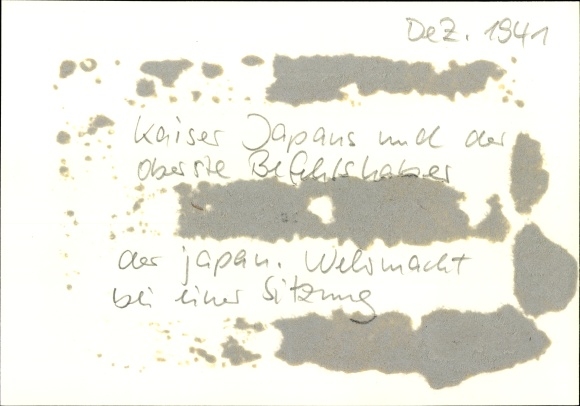 Dez. 1941
Kaiser Japans und der
oberste Befehlshaber
der japan. Wehrmacht
bei einer Sitzung